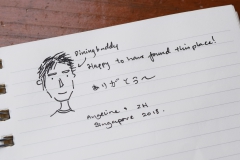 Dining buddy
Happy to have found this place!
ありがとう〜
Angeline + ZH
Singapore 2018.